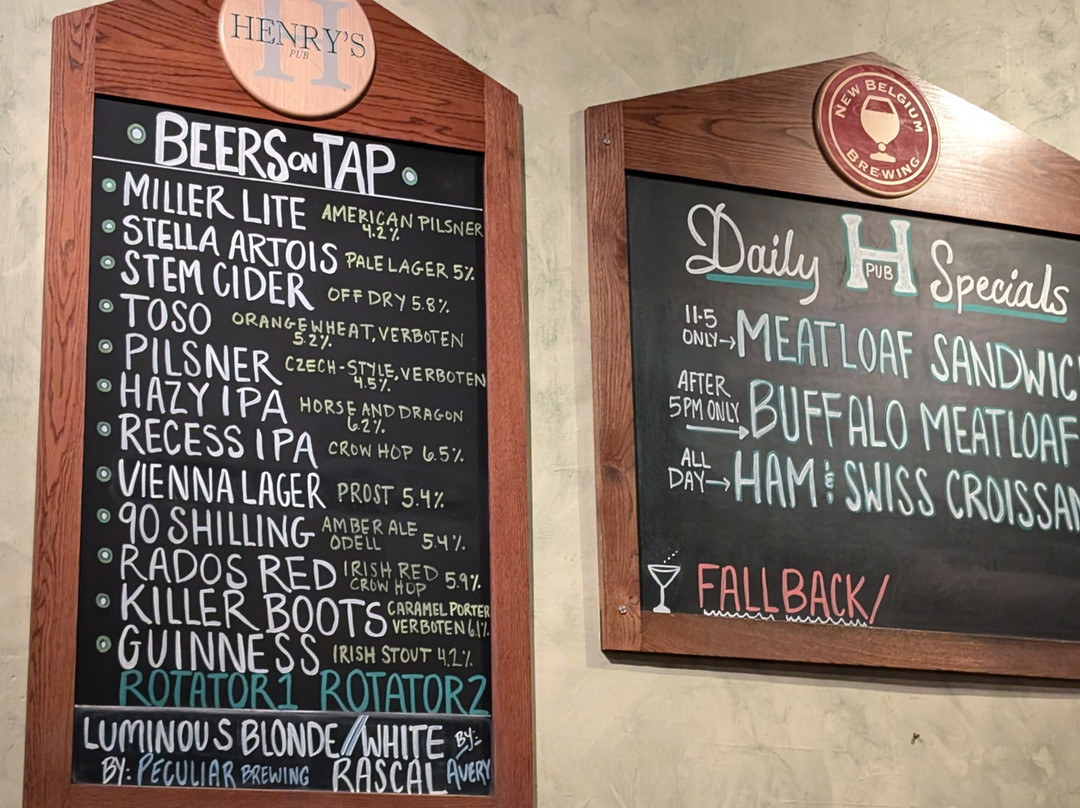 HENRY'S
PUB
BEERS ON TAP
MILLER LITE AMERICAN PILSNER 4.2%
STELLA ARTOIS PALE LAGER 5%
STEM CIDER OFF DRY 5.8%
TOSO ORANGE WHEAT, VERBOTEN 5.2%
PILSNER CZECH-STYLE, VERBOTEN 4.5%
HAZY IPA HORSE AND DRAGON 6.2%
RECESS IPA CROW HOP 6.5%
VIENNA LAGER PROST 5.4%
90 SHILLING AMBER ALE ODELL 5.4%
RADOS RED IRISH RED CROW HOP 5.9%
KILLER BOOTS CARAMEL PORTER VERBOTEN 6.1%
GUINNESS IRISH STOUT 4.2%
ROTATOR1 ROTATOR2
LUMINOUS BLONDE // WHITE RASCAL
BY: PECULIAR BREWING BY: AVERY
NEW BELGIUM
BREWING
Daily H PUB Specials
11-5 ONLY→ MEATLOAF SANDWIC
AFTER 5PM ONLY → BUFFALO MEATLOAF
ALL DAY→ HAM & SWISS CROISSAN
FALLBACK/